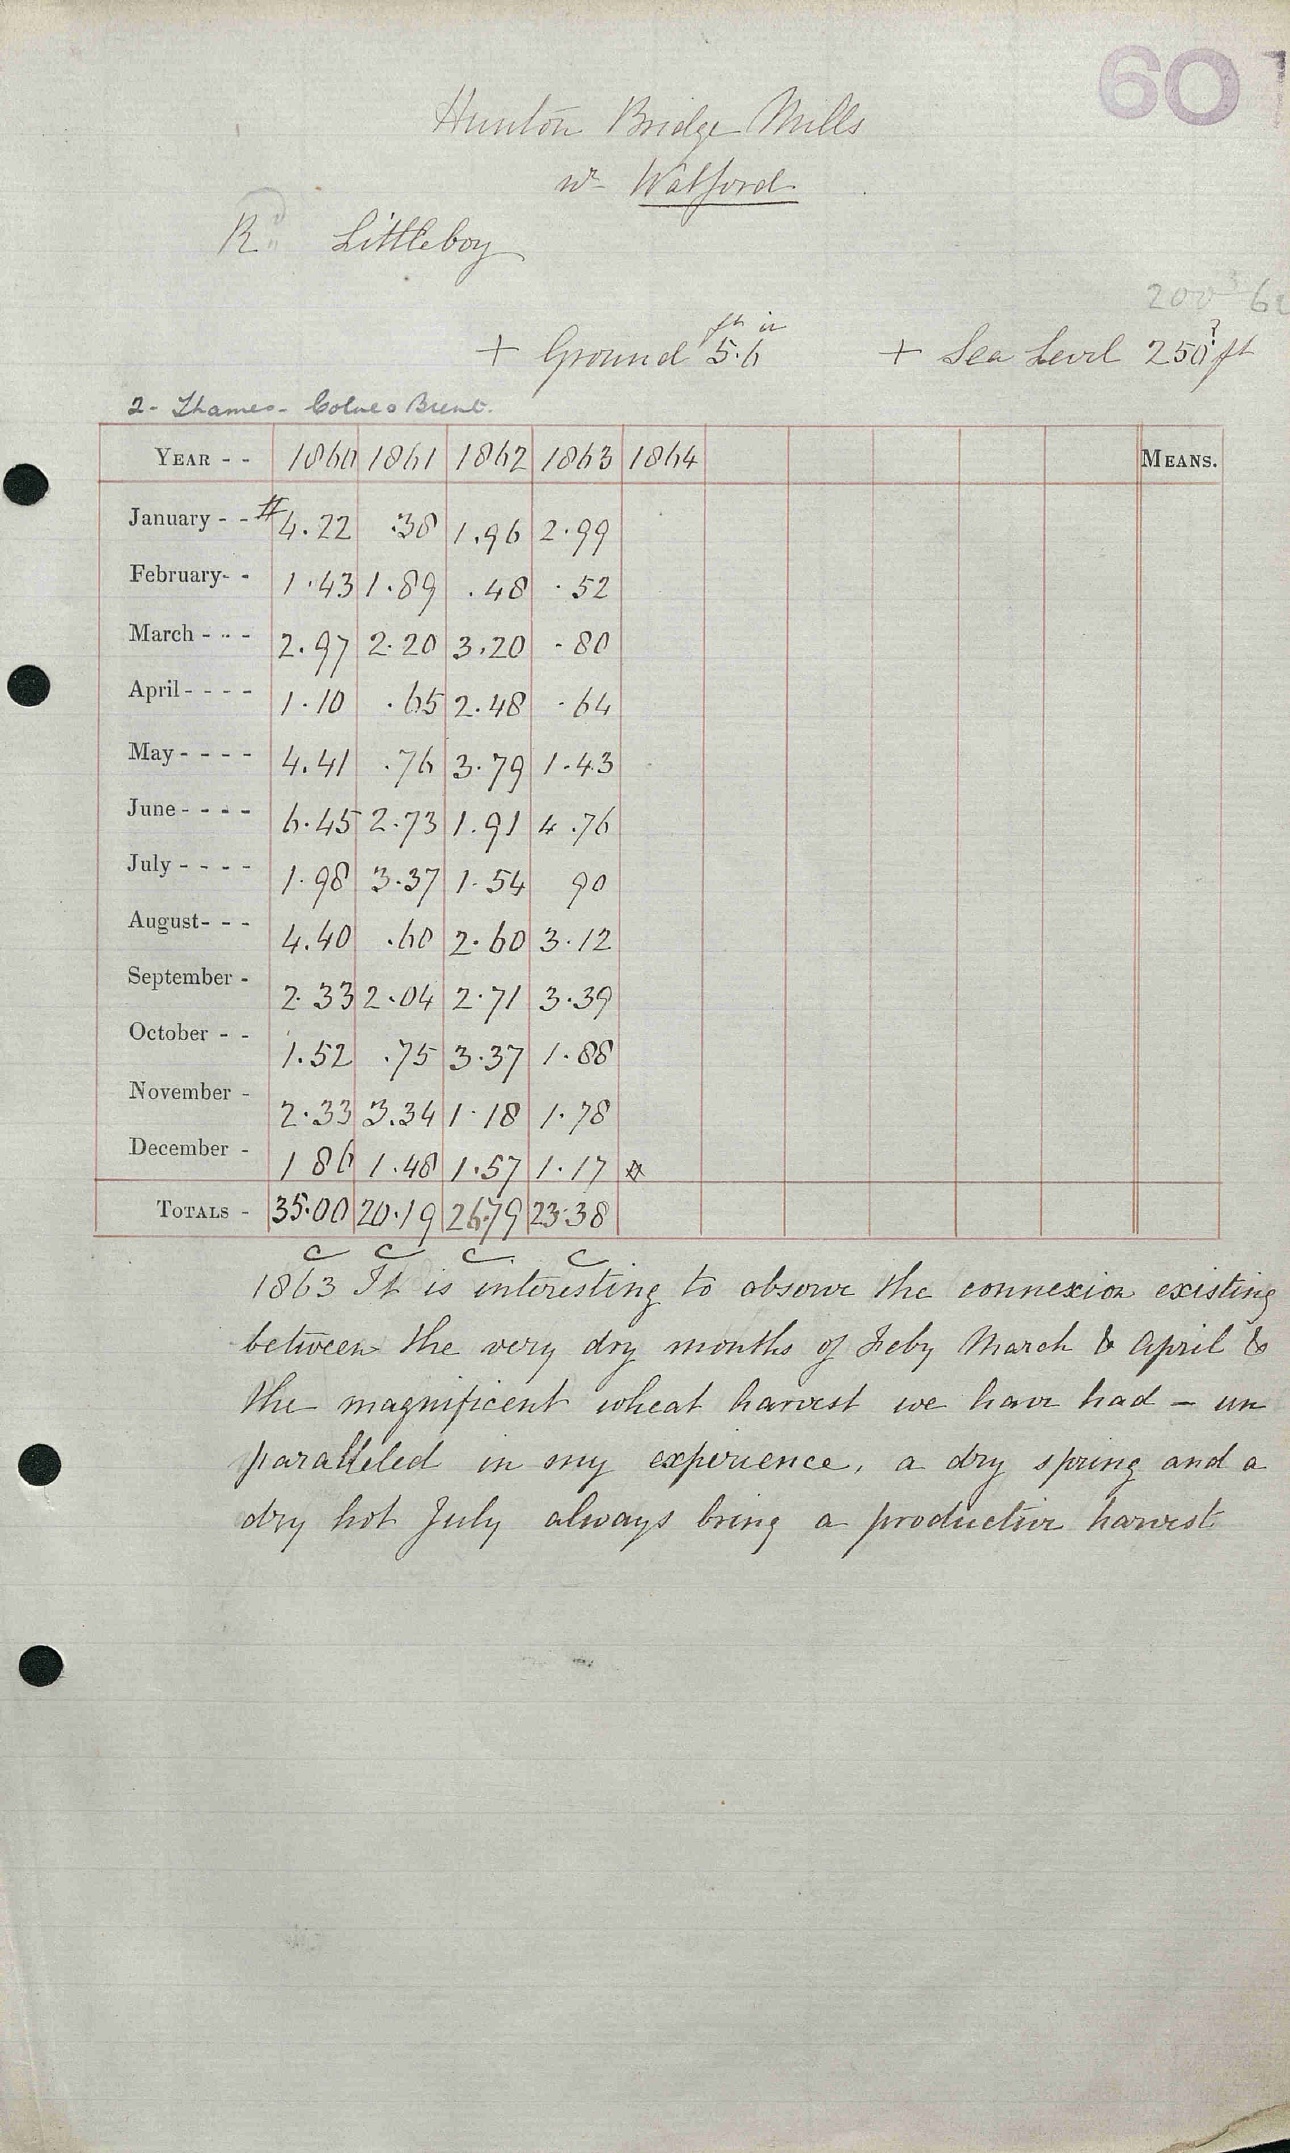 60
Hunton Bridge Mills
nr Watford
Rd Littleboy
200
ft in
+ Ground 5.6 + Sea Level 250? ft
2 - Thames - Colne & Brent.
YEAR - - 1860 1861 1862 1863 1864 MEANS.
January - - # 4.22 .38 1.96 2.99
February- - 1.43 1.89 .48 .52
March - - - 2.97 2.20 3.20 .80
April - - - - 1.10 .65 2.48 .64
May - - - - 4.41 .76 3.79 1.43
June - - - - 6.45 2.73 1.91 4.76
July - - - - 1.98 3.37 1.54 90
August- - - 4.40 .60 2.60 3.12
September - 2.33 2.04 2.71 3.39
October - - 1.52 .75 3.37 1.88
November - 2.33 3.34 1.18 1.78
December - 1 86 1.48 1.57 1.17
TOTALS - 35.00 20.19 26.79 23.38
c c c c
1863 It is interesting to observe the connexion existing
between the very dry months of Feby March & April &
the magnificent wheat harvest we have had - un
paralleled in my experience, a dry spring and a
dry hot July always bring a productive harvest